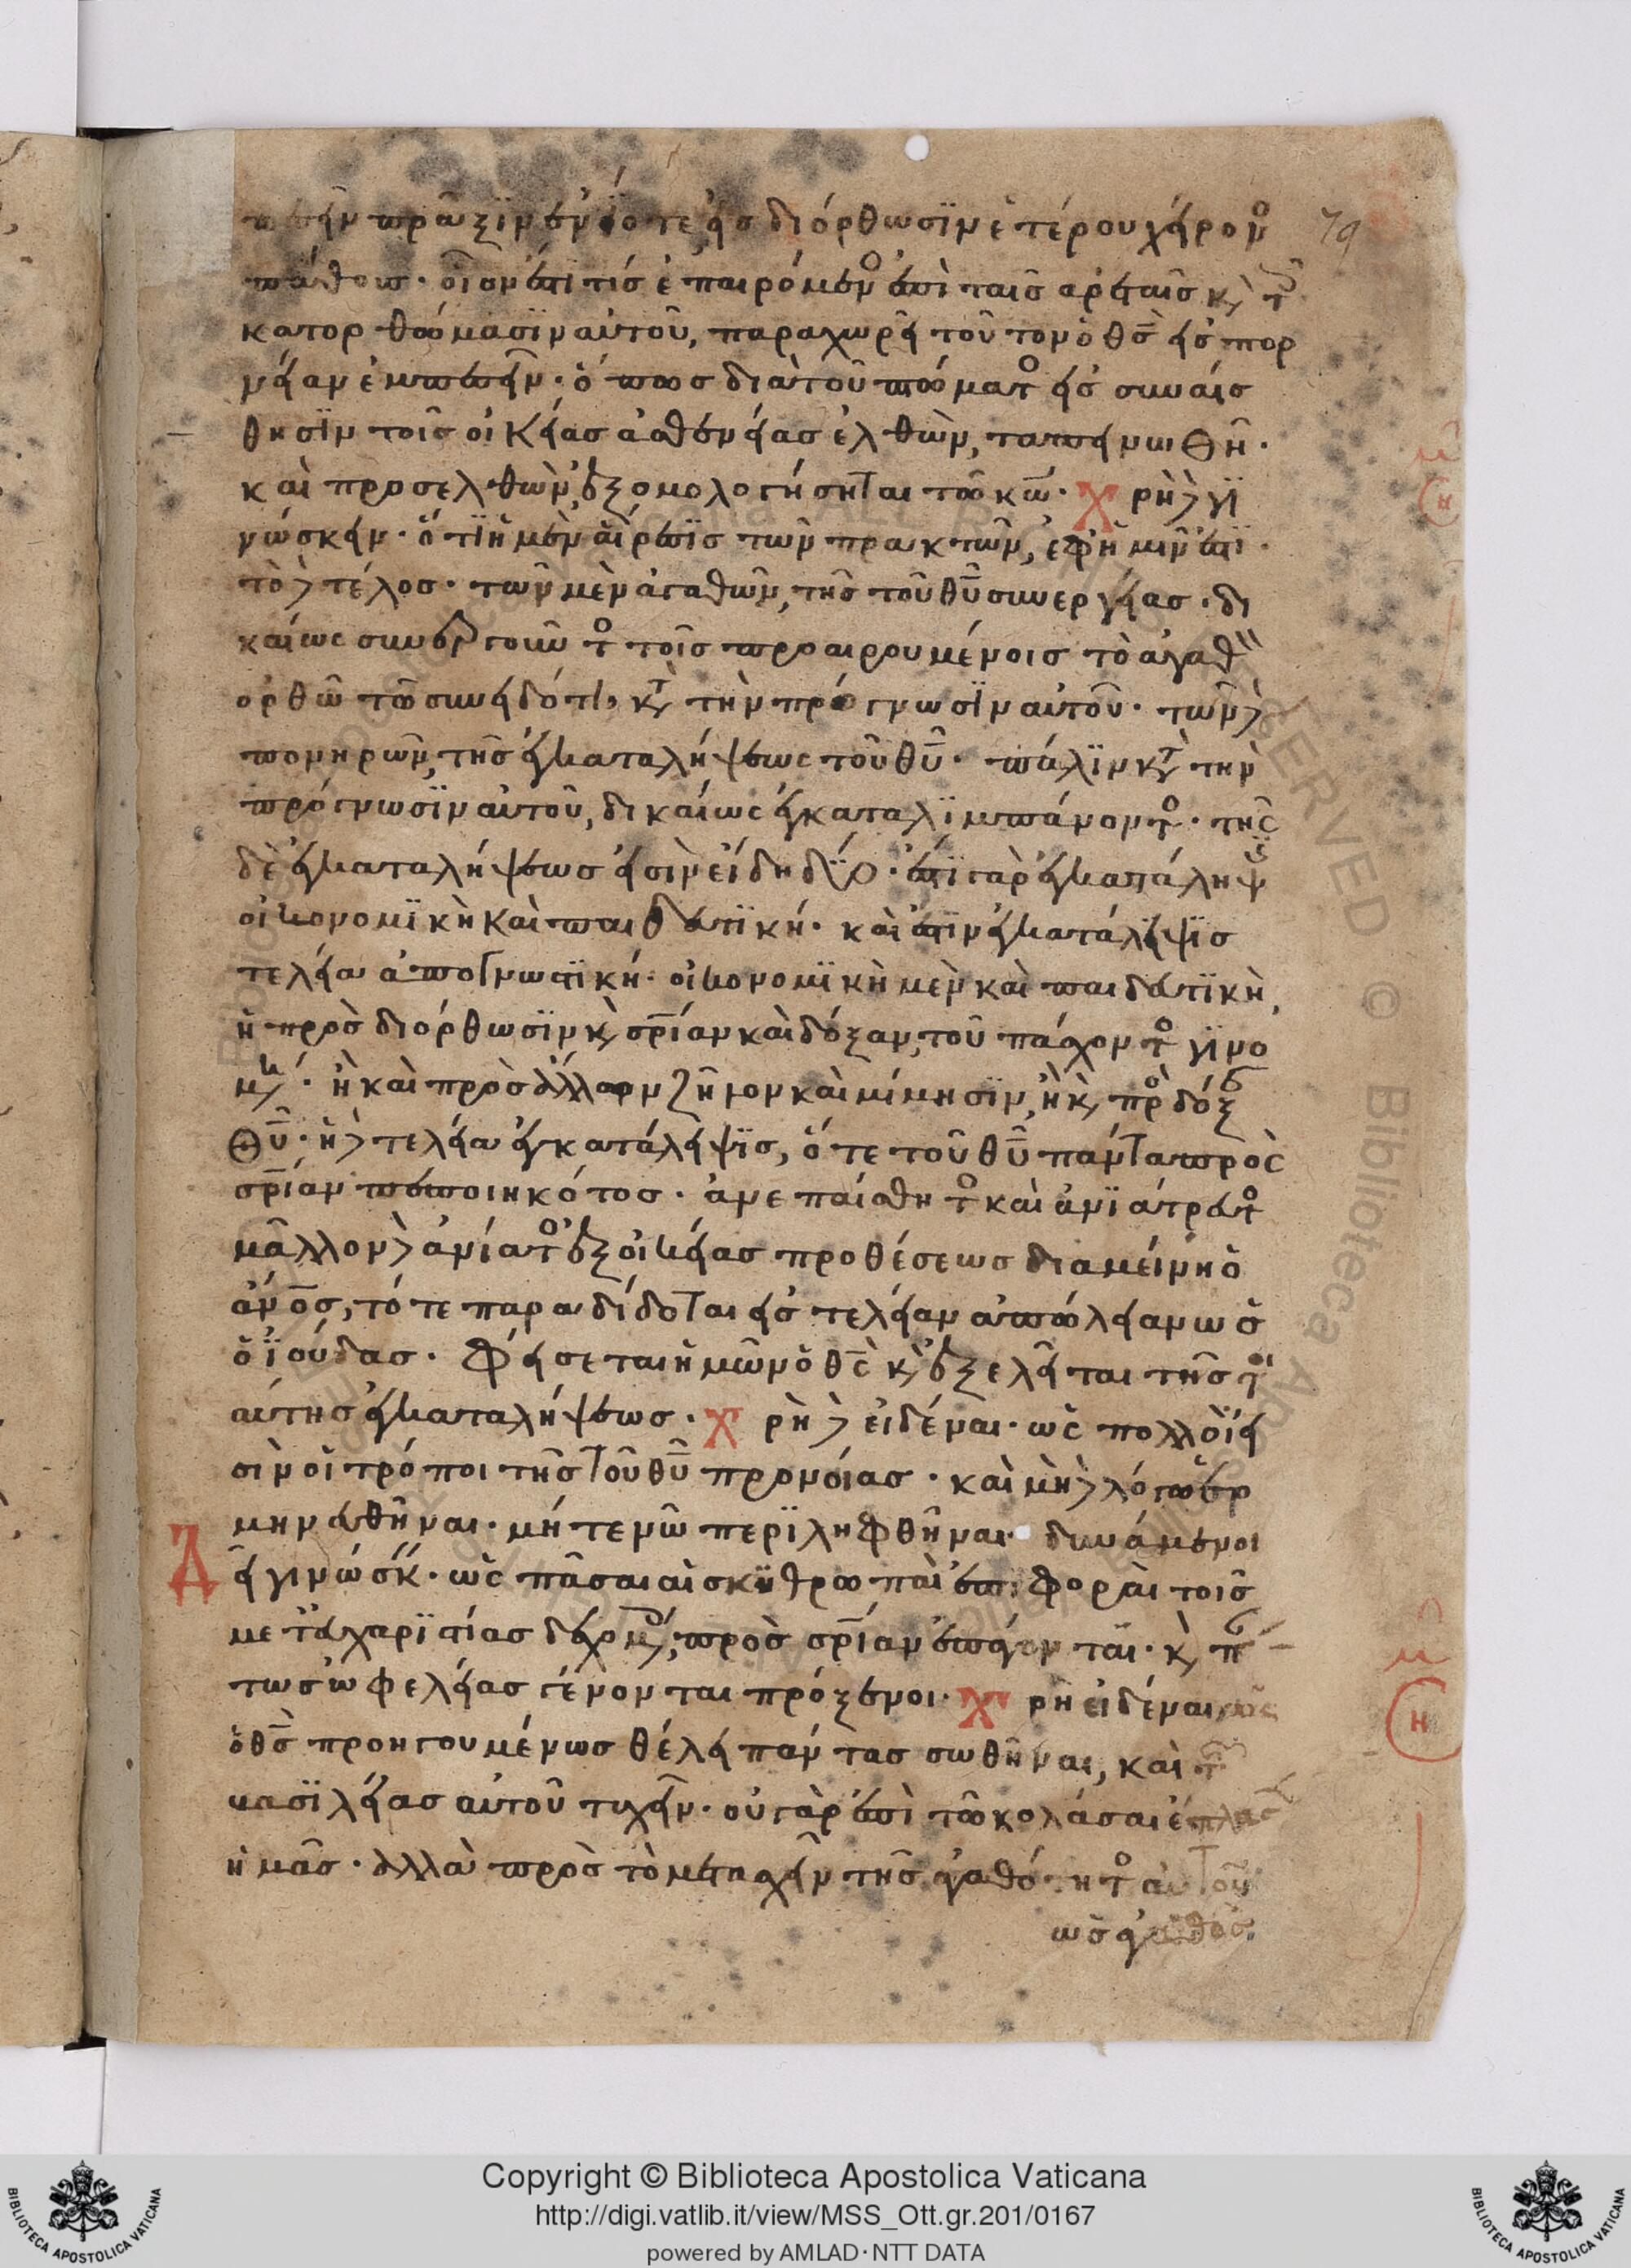 πεσεῖν πρᾶξϊν ἐνίοτε εἰς διόρθωσϊν ἑτέρου χείρονος
πάθους· οἷον ἐστί τις ἐπαιρόμενος ἐπὶ ταῖς ἀρεταῖς κ̀ τοῖς
κατορθώμασϊν αὐτοῦ, παραχωρεῖ τοῦτον ὁ θς̅ εἰς πορ
νείαν ἐμπεσεῖν· ὅπως διὰ τοῦ πτώματος εἰς συναίσ
θησϊν τοῖς οἰκείας ἀσθενείας ἐλθὼν, ταπεινωθῆ·
καὶ προσελθὼν, ἐξομολογήσηται τῶ κω̅· Χρὴ δὲ γϊ
νώσκειν· ὅτϊ ἡ μὲν αἵρεσϊς τῶν πρακτῶν, ἐφ' ἡμῖν ἐστϊ·
τὸ δὲ τέλος· τῶν μὲν ἀγαθῶν, τῆς τοῦ θυ̅ συνεργείας· δι
καίως συνεργοῦντος τοῖς προαιρουμένοις τὸ ἀγαθὸν
ὀρθῶ τῶ συνειδότι, κατὰ τὴν πρόγνωσϊν αὐτοῦ· τῶν δὲ
πονηρῶν, τῆς ἐγκαταλήψεως τοῦ θυ̅· πάλϊν κατὰ τὴν
πρόγνωσϊν αὐτοῦ, δικαίως ἐγκαταλϊμπάνοντος· τῆς
δὲ ἐγκαταλήψεως εἰσὶν εἴδη δύο· ἔστϊ γὰρ ἐγκατάληψϊς
οἰκονομϊκὴ καὶ παιδευτϊκή· καὶ ἔστϊν ἐγκατάλειψϊς
τελεία ἀπογνωστϊκή· οἰκονομϊκὴ μὲν καὶ παιδευτϊκὴ,
ἡ πρὸς διόρθωσϊν κ̀ σρ̅ίαν καὶ δόξαν, τοῦ πάσχοντος γϊνο
μένη· ἢ καὶ πρὸς ἄλλων ζῆλον καὶ μίμησϊν, ἢ κ̀ πρὸς δόξαν
θυ̅· ἡ δὲ τελεία ἐγκατάλειψϊς, ὅτε τοῦ θυ̅ πάντα πρὸς
σρ̅ίαν πεποιηκότος· ἀνεπαίσθητος καὶ ἀνϊάτρευτος
μᾶλλον δὲ ἀνίατος ἐξ οἰκείας προθέσεως διαμείνη ὁ
ἄνο̅ς, τότε παραδίδοται εἰς τελείαν ἀπώλειαν ὡς
ὁ ἰούδας· φείσεται ἡμῶν ὁ θς̅ κ̀ ἐξελεῖται τῆς τοι
αύτης ἐγκαταλήψεως· Χρὴ δὲ εἰδέναι· ὡς πολλοὶ εἰ
σὶν οἱ τρόποι τῆς τοῦ θυ̅ προνοίας· καὶ μὴ δὲ λόγω ἑρ
μηνευθῆναι· μήτε νῶ περϊληφθῆναι δυνάμενοι
Δεῖ γινώσκειν· ὡς πᾶσαι αἱ σκυθρωπαὶ ἐπιφοραὶ τοῖς
μετ' εὐχαρϊστίας δεχομένοις, πρὸς σρ̅ίαν ἐπάγονται· κ̀ πάν
τως ὠφελείας γένονται πρόξενοι· Χρὴ εἰδέναι, ὡς
ὁ θς̅ προηγουμένως θέλει πάντας σωθῆναι, καὶ τῆς
βασϊλείας αὐτοῦ τυχεῖν· οὐ γὰρ ἐπὶ τῶ κολάσαι ἔπλασεν
ἡμᾶς· ἀλλὰ πρὸς τὸ μετασχεῖν τῆς ἀγαθότητος αὐτοῦ
ὡς ἀγαθὸς
Copyright © Biblioteca Apostolica Vaticana
http://digi.vatlib.it/view/MSS_Ott.gr.201/0167
powered by AMLAD·NTT DATA
BIBLIOTECA APOSTOLICA VATICANA
BIBLIOTECA APOSTOLICA VATICANA